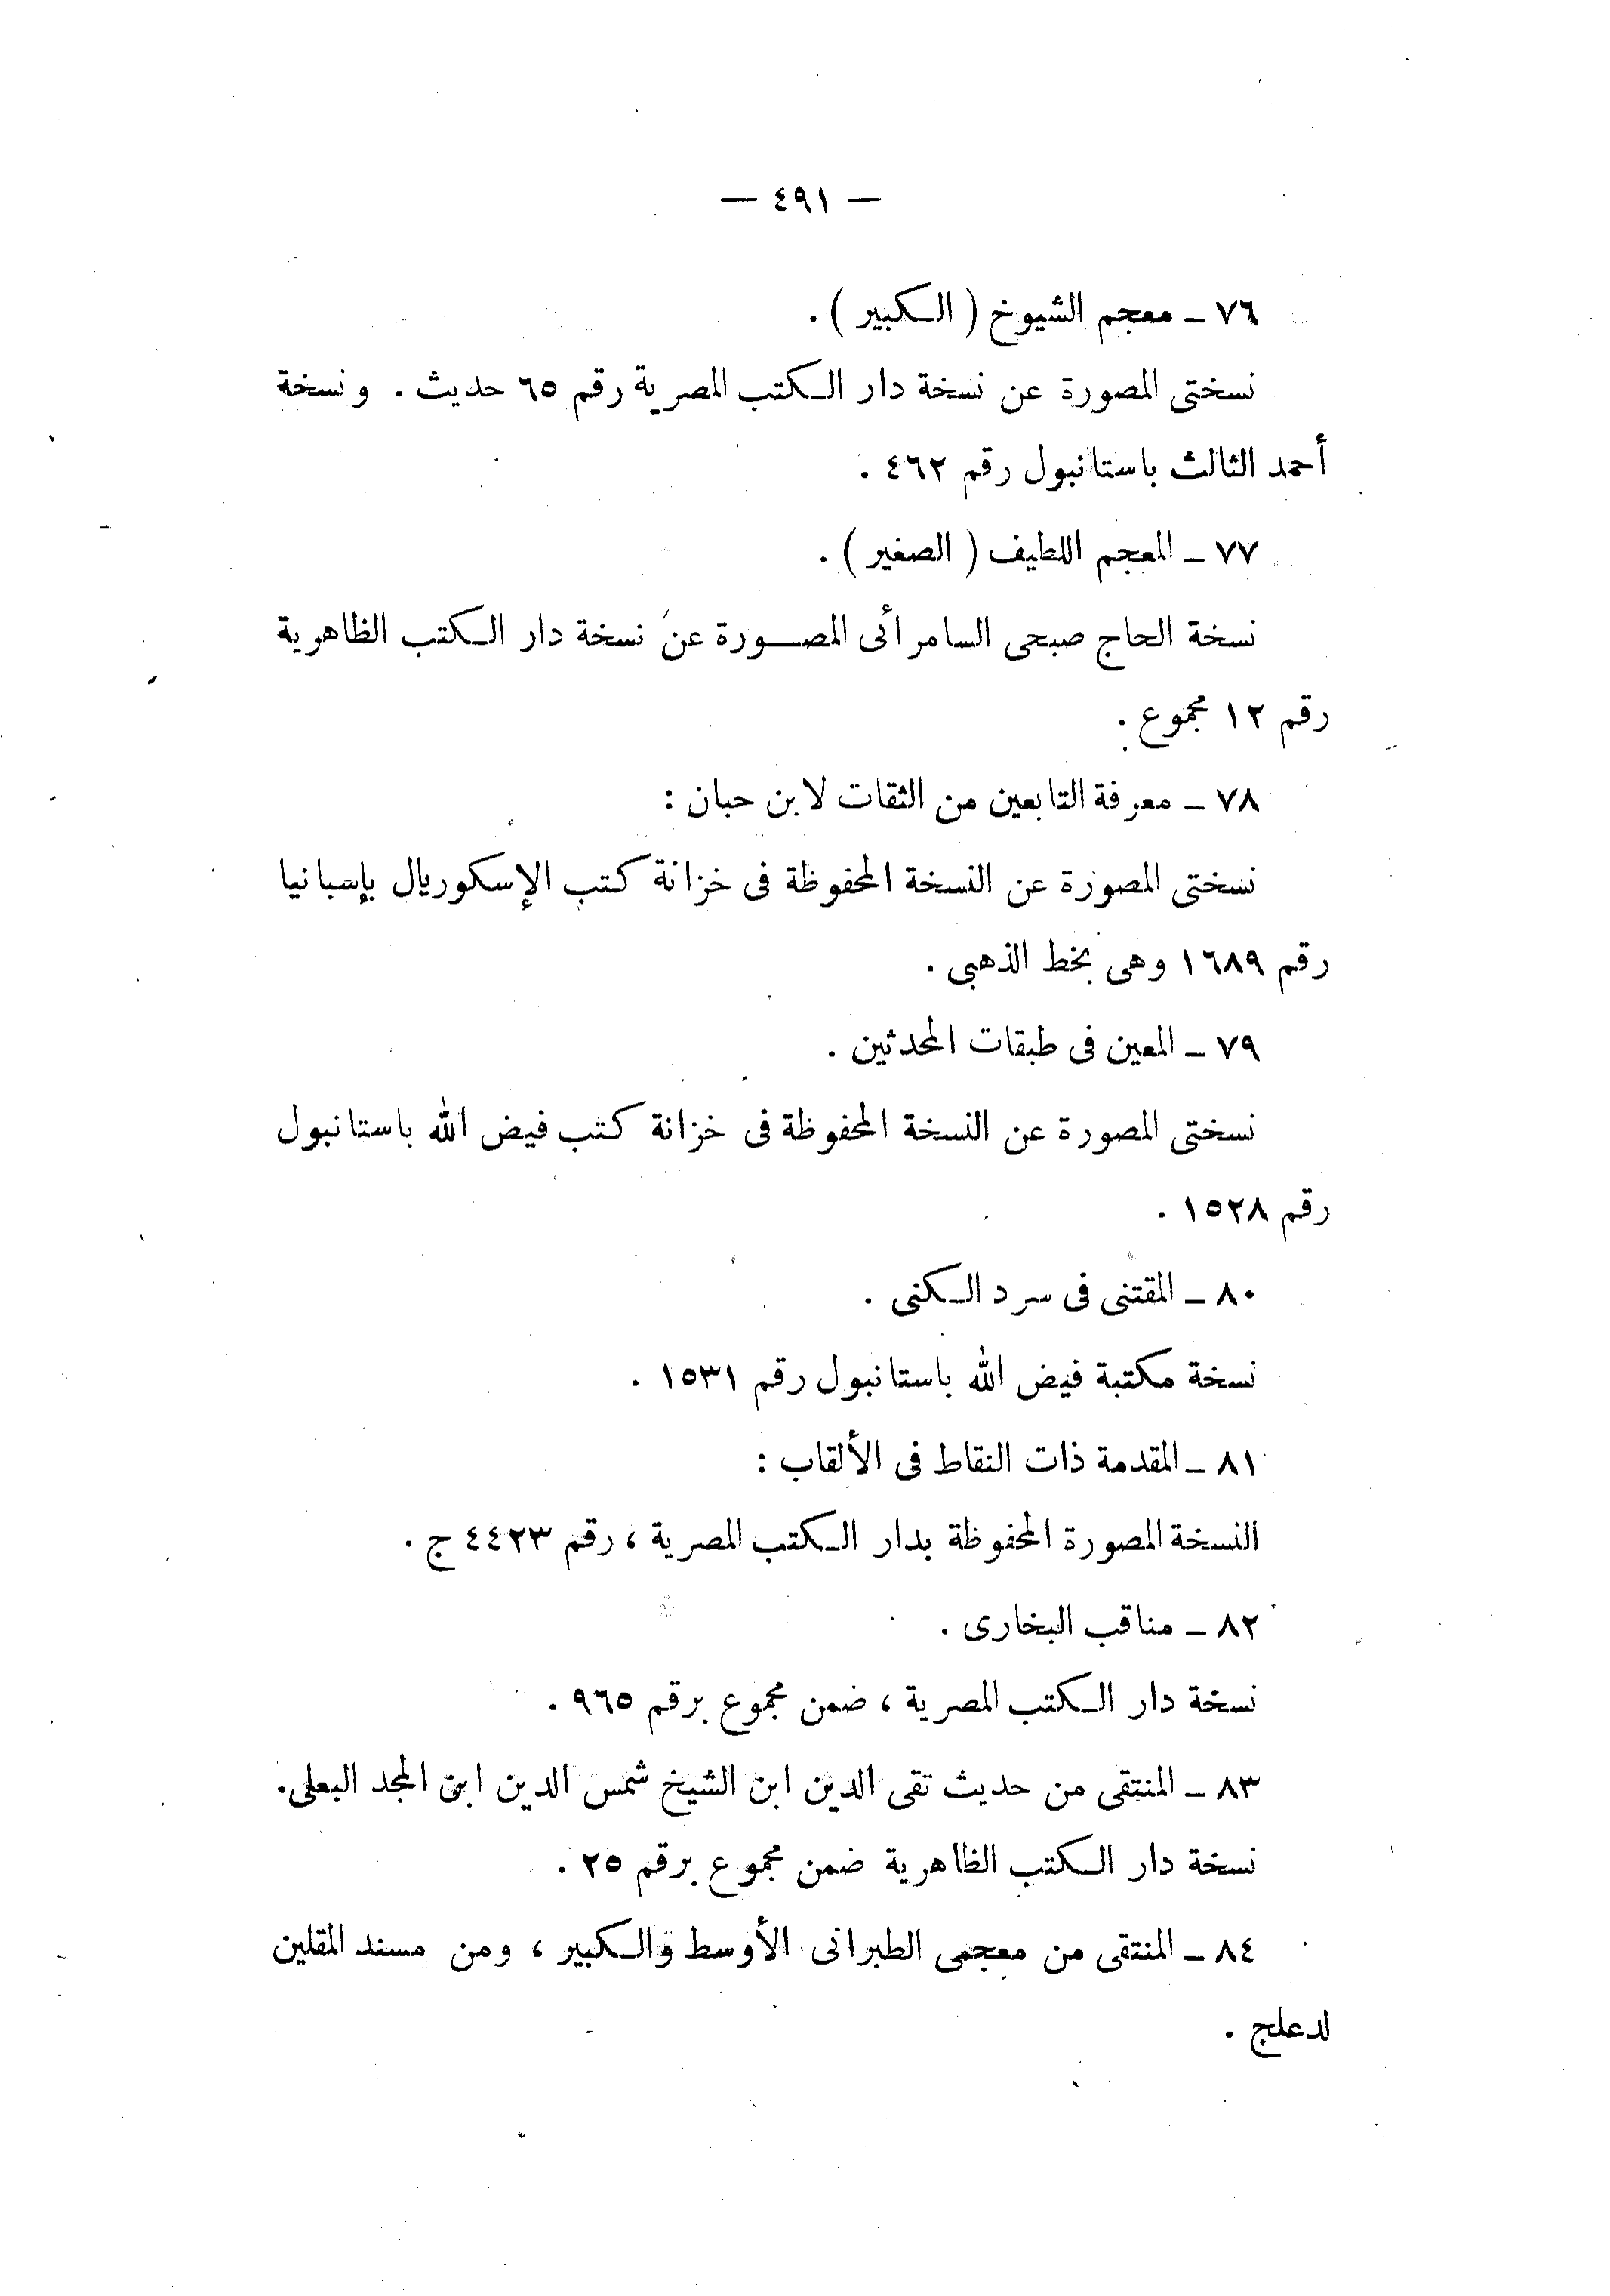 — ٤٩١ —
٧٦ ـ معجم الشيوخ ( الكبير ) .
نسختى المصورة عن نسخة دار الكتب المصرية رقم ٦٥ حديث . ونسخة
أحمد الثالث باستانبول رقم ٤٦٢ .
٧٧ ـ المعجم اللطيف ( الصغير ) .
نسخة الحاج صبحى السامرائى المصورة عن نسخة دار الكتب الظاهرية
رقم ١٢ مجموع .
٧٨ ـ معرفة التابعين من الثقات لابن حبان :
نسختى المصورة عن النسخة المحفوظة فى خزانة كتب الإسكوريال بإسبانيا
رقم ١٦٨٩ وهى بخط الذهبى .
٧٩ ـ المعين فى طبقات المحدثين .
نسختى المصورة عن النسخة المحفوظة فى خزانة كتب فيض الله باستانبول
رقم ١٥٢٨ .
٨٠ ـ المقتنى فى سرد الكنى .
نسخة مكتبة فيض الله باستانبول رقم ١٥٣١ .
٨١ ـ المقدمة ذات النقاط فى الألقاب :
النسخة المصورة المحفوظة بدار الكتب المصرية ، رقم ٤٤٢٣ ج .
٨٢ ـ مناقب البخارى .
نسخة دار الكتب المصرية ، ضمن مجموع برقم ٩٦٥ .
٨٣ ـ المنتقى من حديث تقى الدين ابن الشيخ شمس الدين ابن المجد البعلى.
نسخة دار الكتب الظاهرية ضمن مجموع برقم ٢٥ .
٨٤ ـ المنتقى من معجمى الطبرانى الأوسط والكبير ، ومن مسند المقلين
لدعلج .